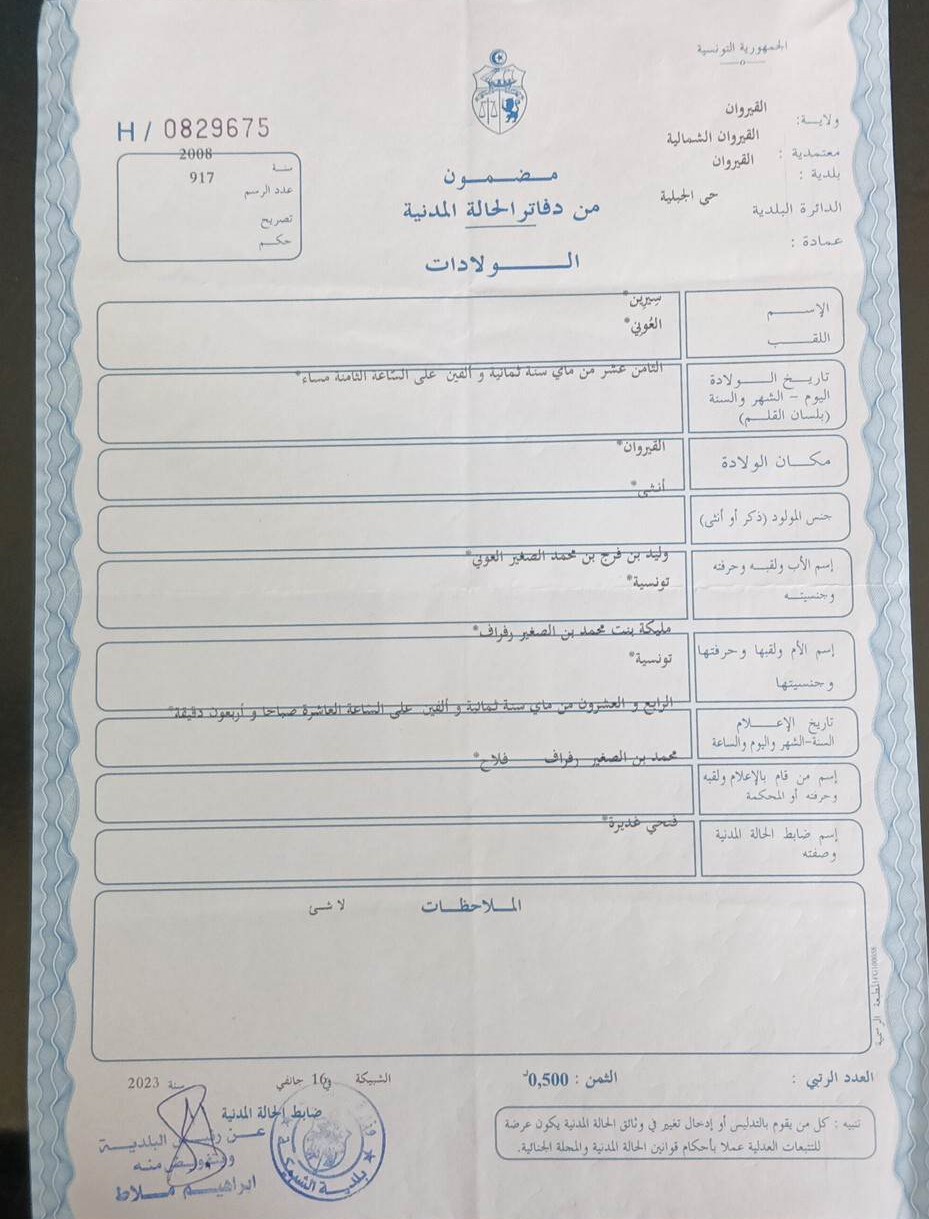 الجمهورية التونسية
ولاية: القيروان
معتمدية : القيروان الشمالية
بلدية : القيروان
الدائرة البلدية حى الجبلية
عمادة :
H / 0829675
سنة 2008
عدد الرسم 917
تصريح
حكم
مضمون
من دفاتر الحالة المدنية
الولادات
الإسم سيرين*
اللقب العُوني*
تاريخ الولادة
اليوم - الشهر والسنة
(بلسان القلم)
الثامن عشر من ماي سنة ثمانية و ألفين على السّاعة الثامنة مساء*
مكان الولادة القيروان*
جنس المولود (ذكر أو أنثى) أنثى*
إسم الأب ولقبه وحرفته
وجنسيته
وليد بن فرج بن محمد الصغير العوني*
تونسية*
إسم الأم ولقبها وحرفتها
وجنسيتها
مليكة بنت محمد بن الصغير رفراف*
تونسية*
تاريخ الإعلام
السنة-الشهر واليوم والساعة
الرابع و العشرون من ماي سنة ثمانية و ألفين على السّاعة العاشرة صباحا و أربعون دقيقة*
إسم من قام بالإعلام ولقبه
وحرفته أو المحكمة
محمد بن الصغير رفراف فلاح*
إسم ضابط الحالة المدنية
وصفته
فتحي غديرة*
الملاحظات لا شئ
المطبعة الرسمية
العدد الرتبي : الثمن : 0,500د
تنبيه : كل من يقوم بالتدليس أو إدخال تغيير في وثائق الحالة المدنية يكون عرضة
للتتبعات العدلية عملا بأحكام قوانين الحالة المدنية والمجلة الجنائية.
الشبيكة في 16 جانفي سنة 2023
ضابط الحالة المدنية
عن البلدية
وبتفويض منه
ابراهيم ملاط
بلدية الشبيكة